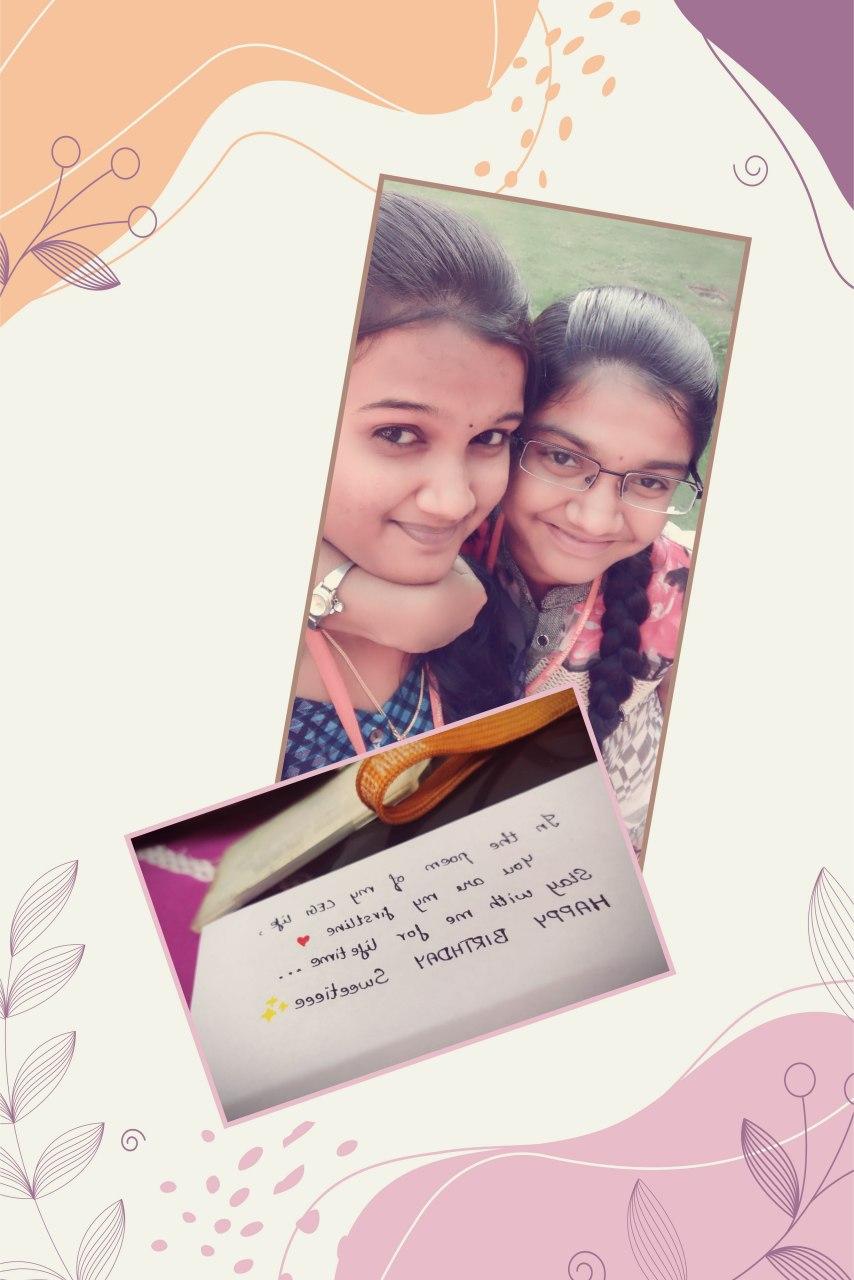 In the poem of my CEG life,
You are my firstline ❤️
Stay with me for life time ...
HAPPY BIRTHDAY Sweetieee ✨